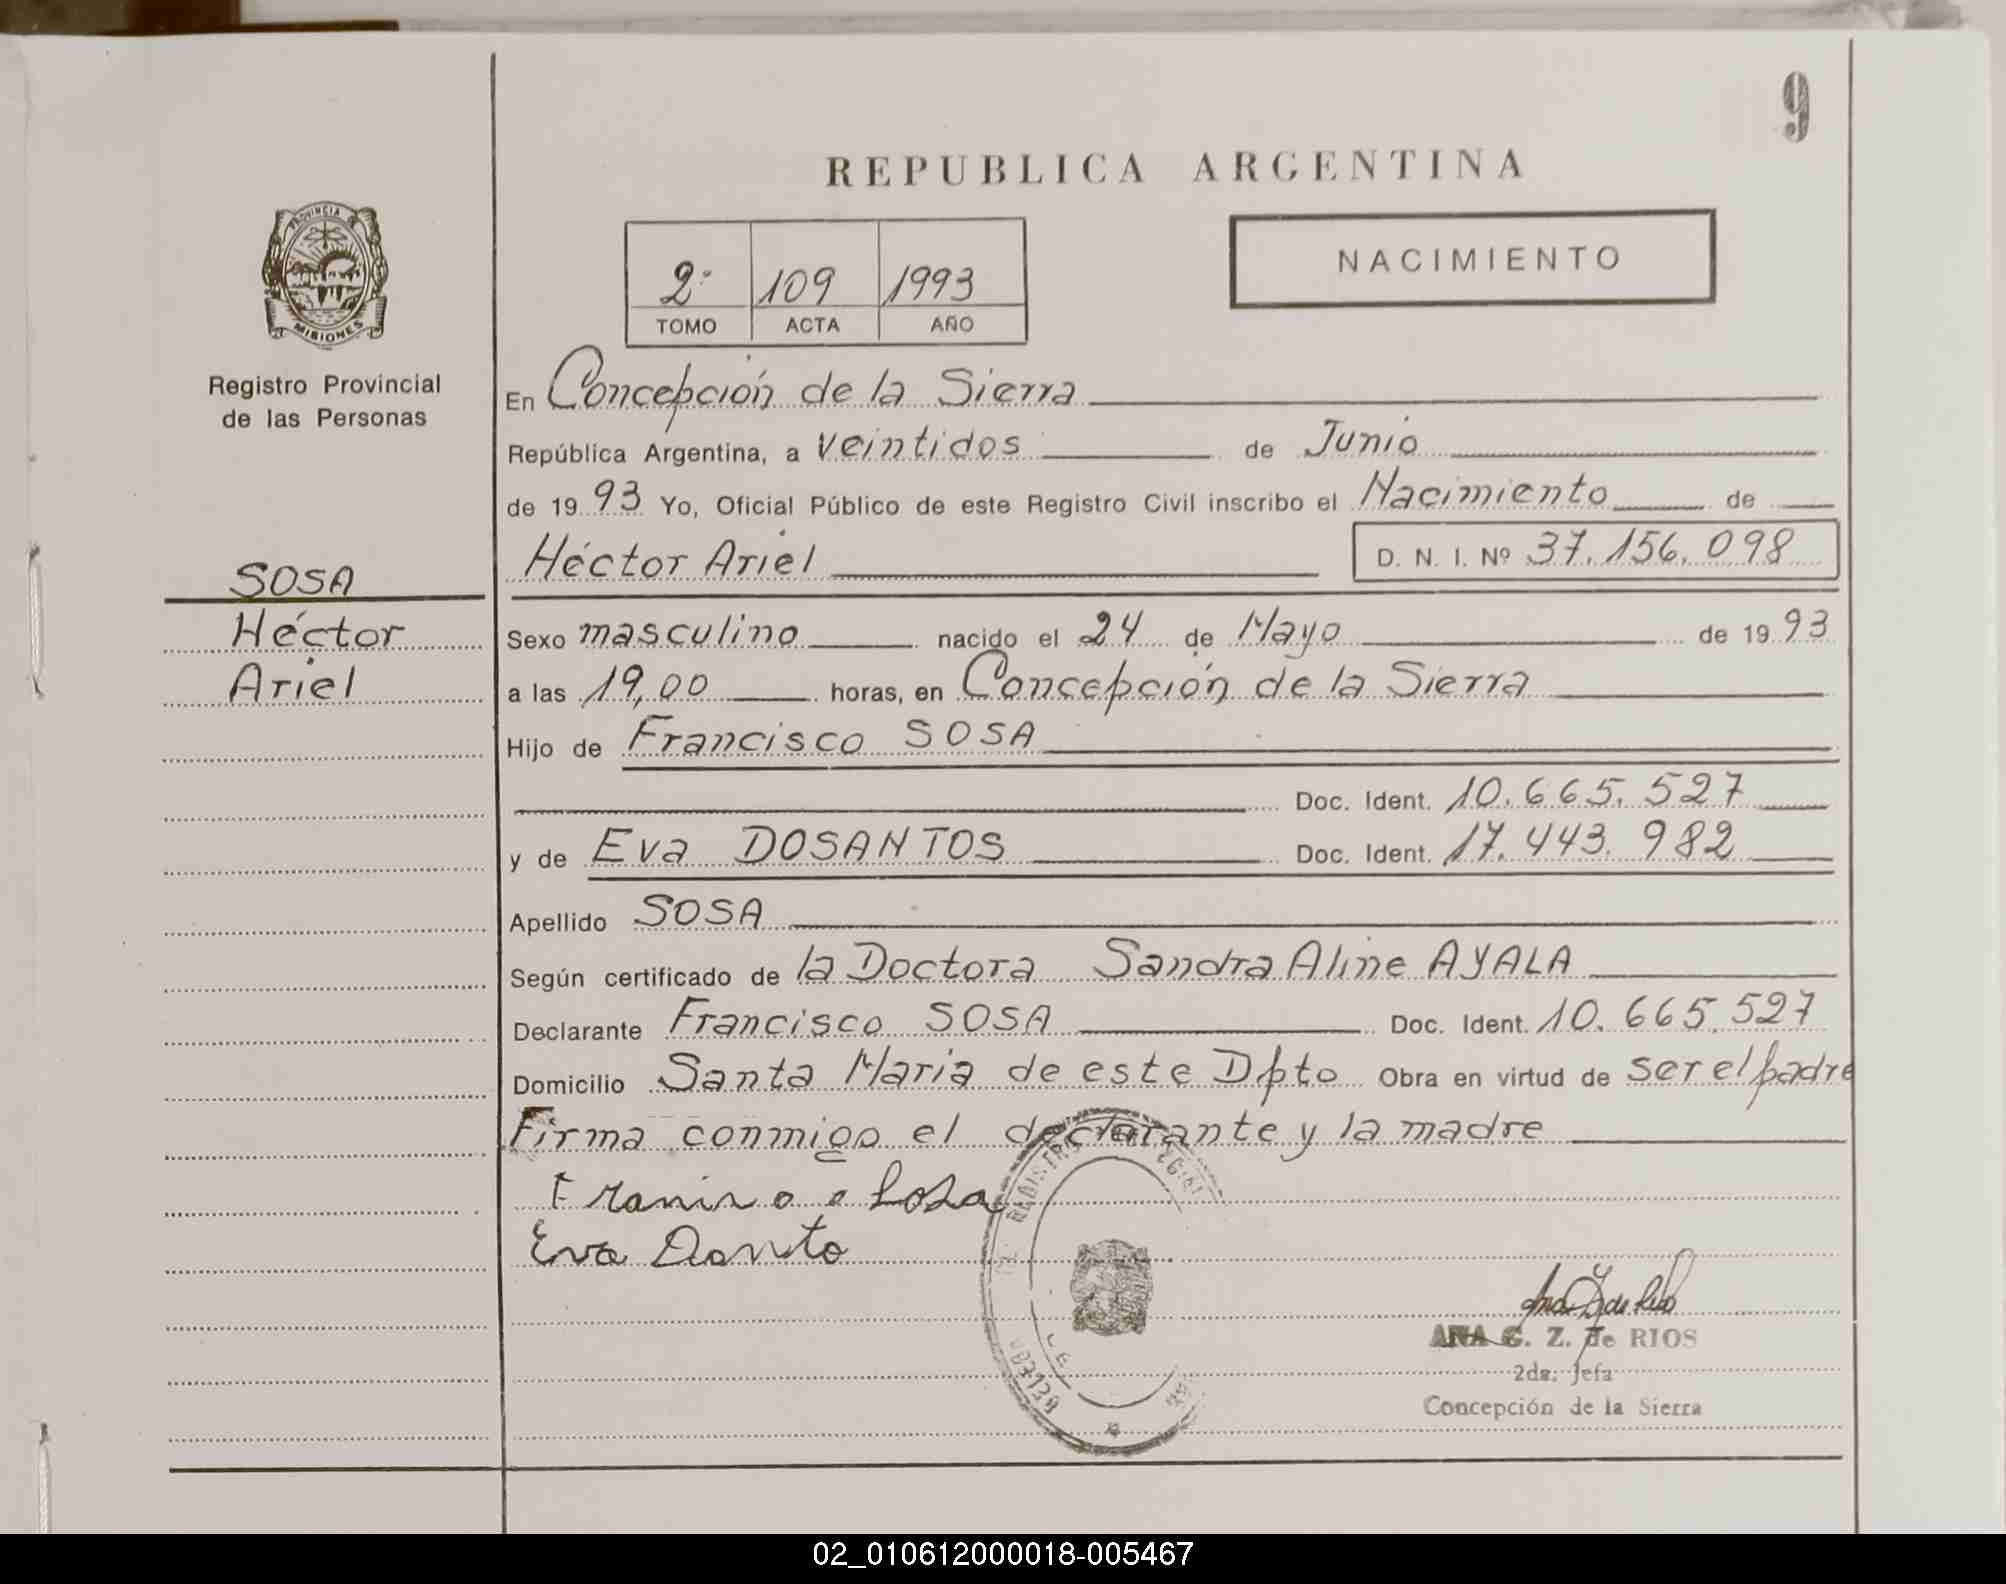 9
REPUBLICA ARGENTINA
PROVINCIA DE
MISIONES
Registro Provincial
de las Personas
2º 109 1993
TOMO ACTA AÑO
NACIMIENTO
En Concepción de la Sierra
República Argentina, a veintidos de Junio
de 19 93 Yo, Oficial Público de este Registro Civil inscribo el Nacimiento de
Héctor Ariel D. N. I. Nº 37.156.098
SOSA
Héctor
Ariel
Sexo masculino nacido el 24 de Mayo de 19 93
a las 19,00 horas, en Concepción de la Sierra
Hijo de Francisco SOSA
Doc. Ident. 10.665.527
y de Eva DOSANTOS Doc. Ident. 17.443.982
Apellido SOSA
Según certificado de la Doctora Sandra Aline AYALA
Declarante Francisco SOSA Doc. Ident. 10.665.527
Domicilio Santa Maria de este Dpto Obra en virtud de ser el padre
Firma conmigo el declarante y la madre
Sosa
Eva
ANA G. Z. de RIOS
2da. Jefa
Concepción de la Sierra
02_010612000018-005467